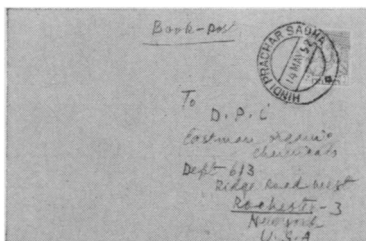 Book-Post
HINDI PRACHAR SABHA
14 MAY 52
To
D. P. I
Eastman Organic
Chemicals
Dept 613
Ridge Road West
Rochester - 3
New York
U.S.A